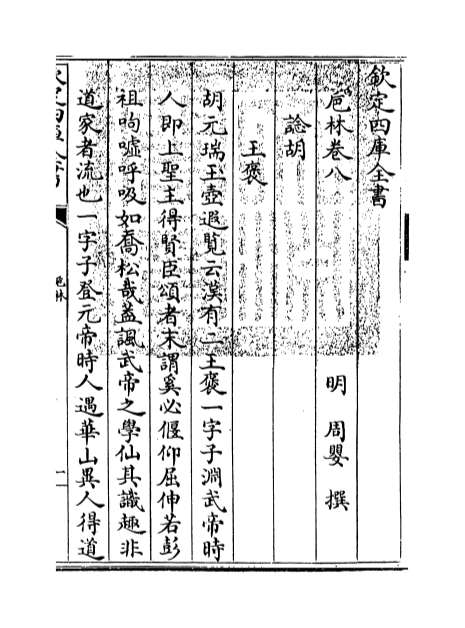 欽定四庫全書
卮林卷八
明 周嬰 撰
諗胡
王褒
胡元瑞玉壺遐覽云漢有二王褒一字子淵武帝時
人即上聖主得賢臣頌者末謂奚必偃仰屈伸若彭
祖呴噓呼吸如喬松哉蓋諷武帝之學仙其識趣非
道家者流也一字子登元帝時人遇華山異人得道
欽定四庫全書
卮林
一